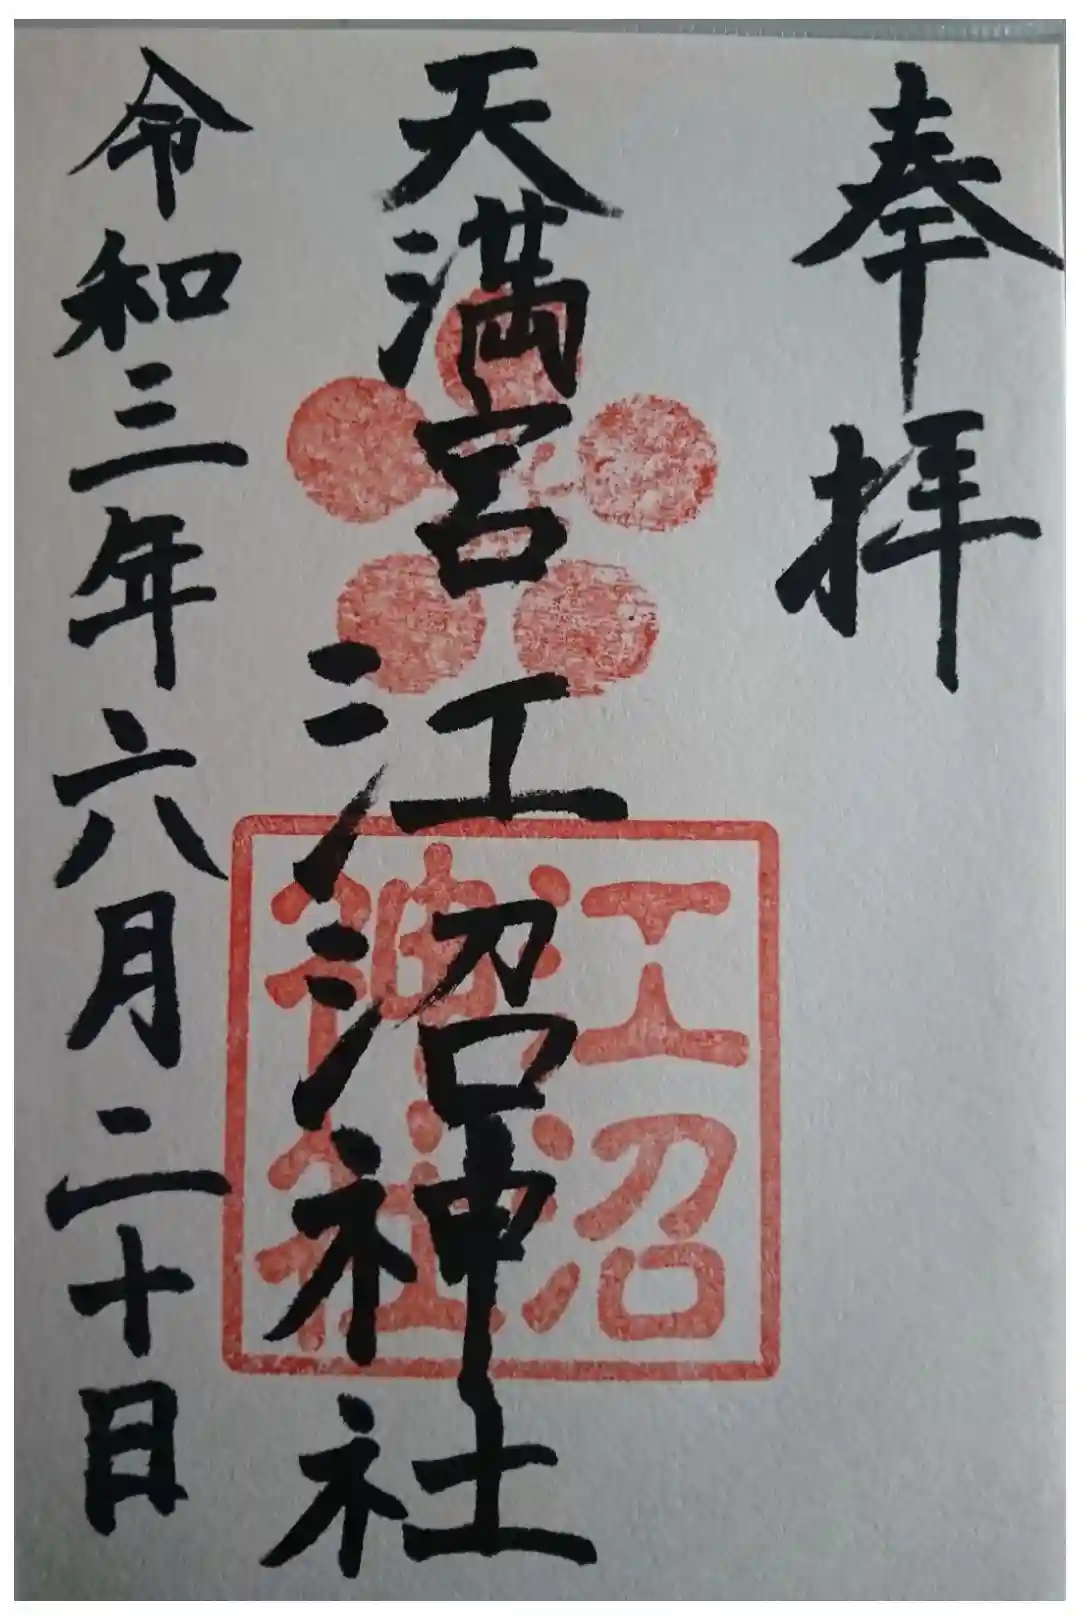 奉拝
天満宮江沼神社
江沼
神社
令和三年六月二十日